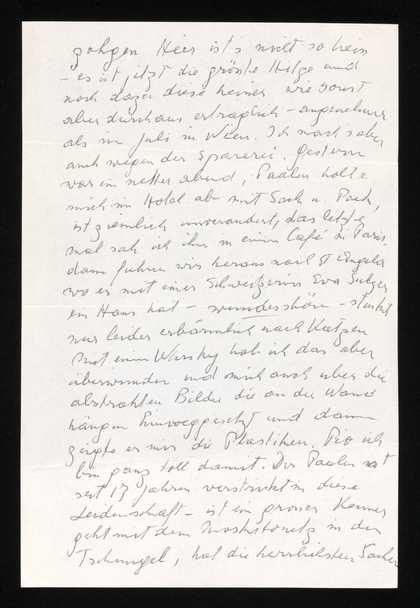 Hier ist's nicht so heiss
– es ist jetzt die grösste Hitze und
noch dazu diese heuer wie sonst
aber durchaus erträglich – angenehmer
als im Juli in Wien. Ich mach's aber
auch wegen der Sparerei. Gestern
war ein netter abend, Paalen holte
mich im Hotel ab mit Sack u. Pack,
ist ziemlich unverändert, das letzte
mal sah ich ihn in einem Café in Paris,
dann fuhren wir heraus nach St Angelo
wo er mit einer Schweizerin Eva Sulzer
ein Haus hat – wunderschön – stinkt
nur leider erbärmlich nach Katzen
Mit einem Whisky hab ich das aber
überwunden und mich auch über die
abstrakten Bilder die an der Wand
hängen hinweggesetzt und dann
zeigte er mir die Plastiken. Bin ich
ganz toll damit. Der Paalen ist
seit 17 Jahren verstrickt in diese
Leidenschaft – ist ein grosser Kenner
geht mit dem Moskitonetz in den
Tschungel, hat die herrlichsten Sachen